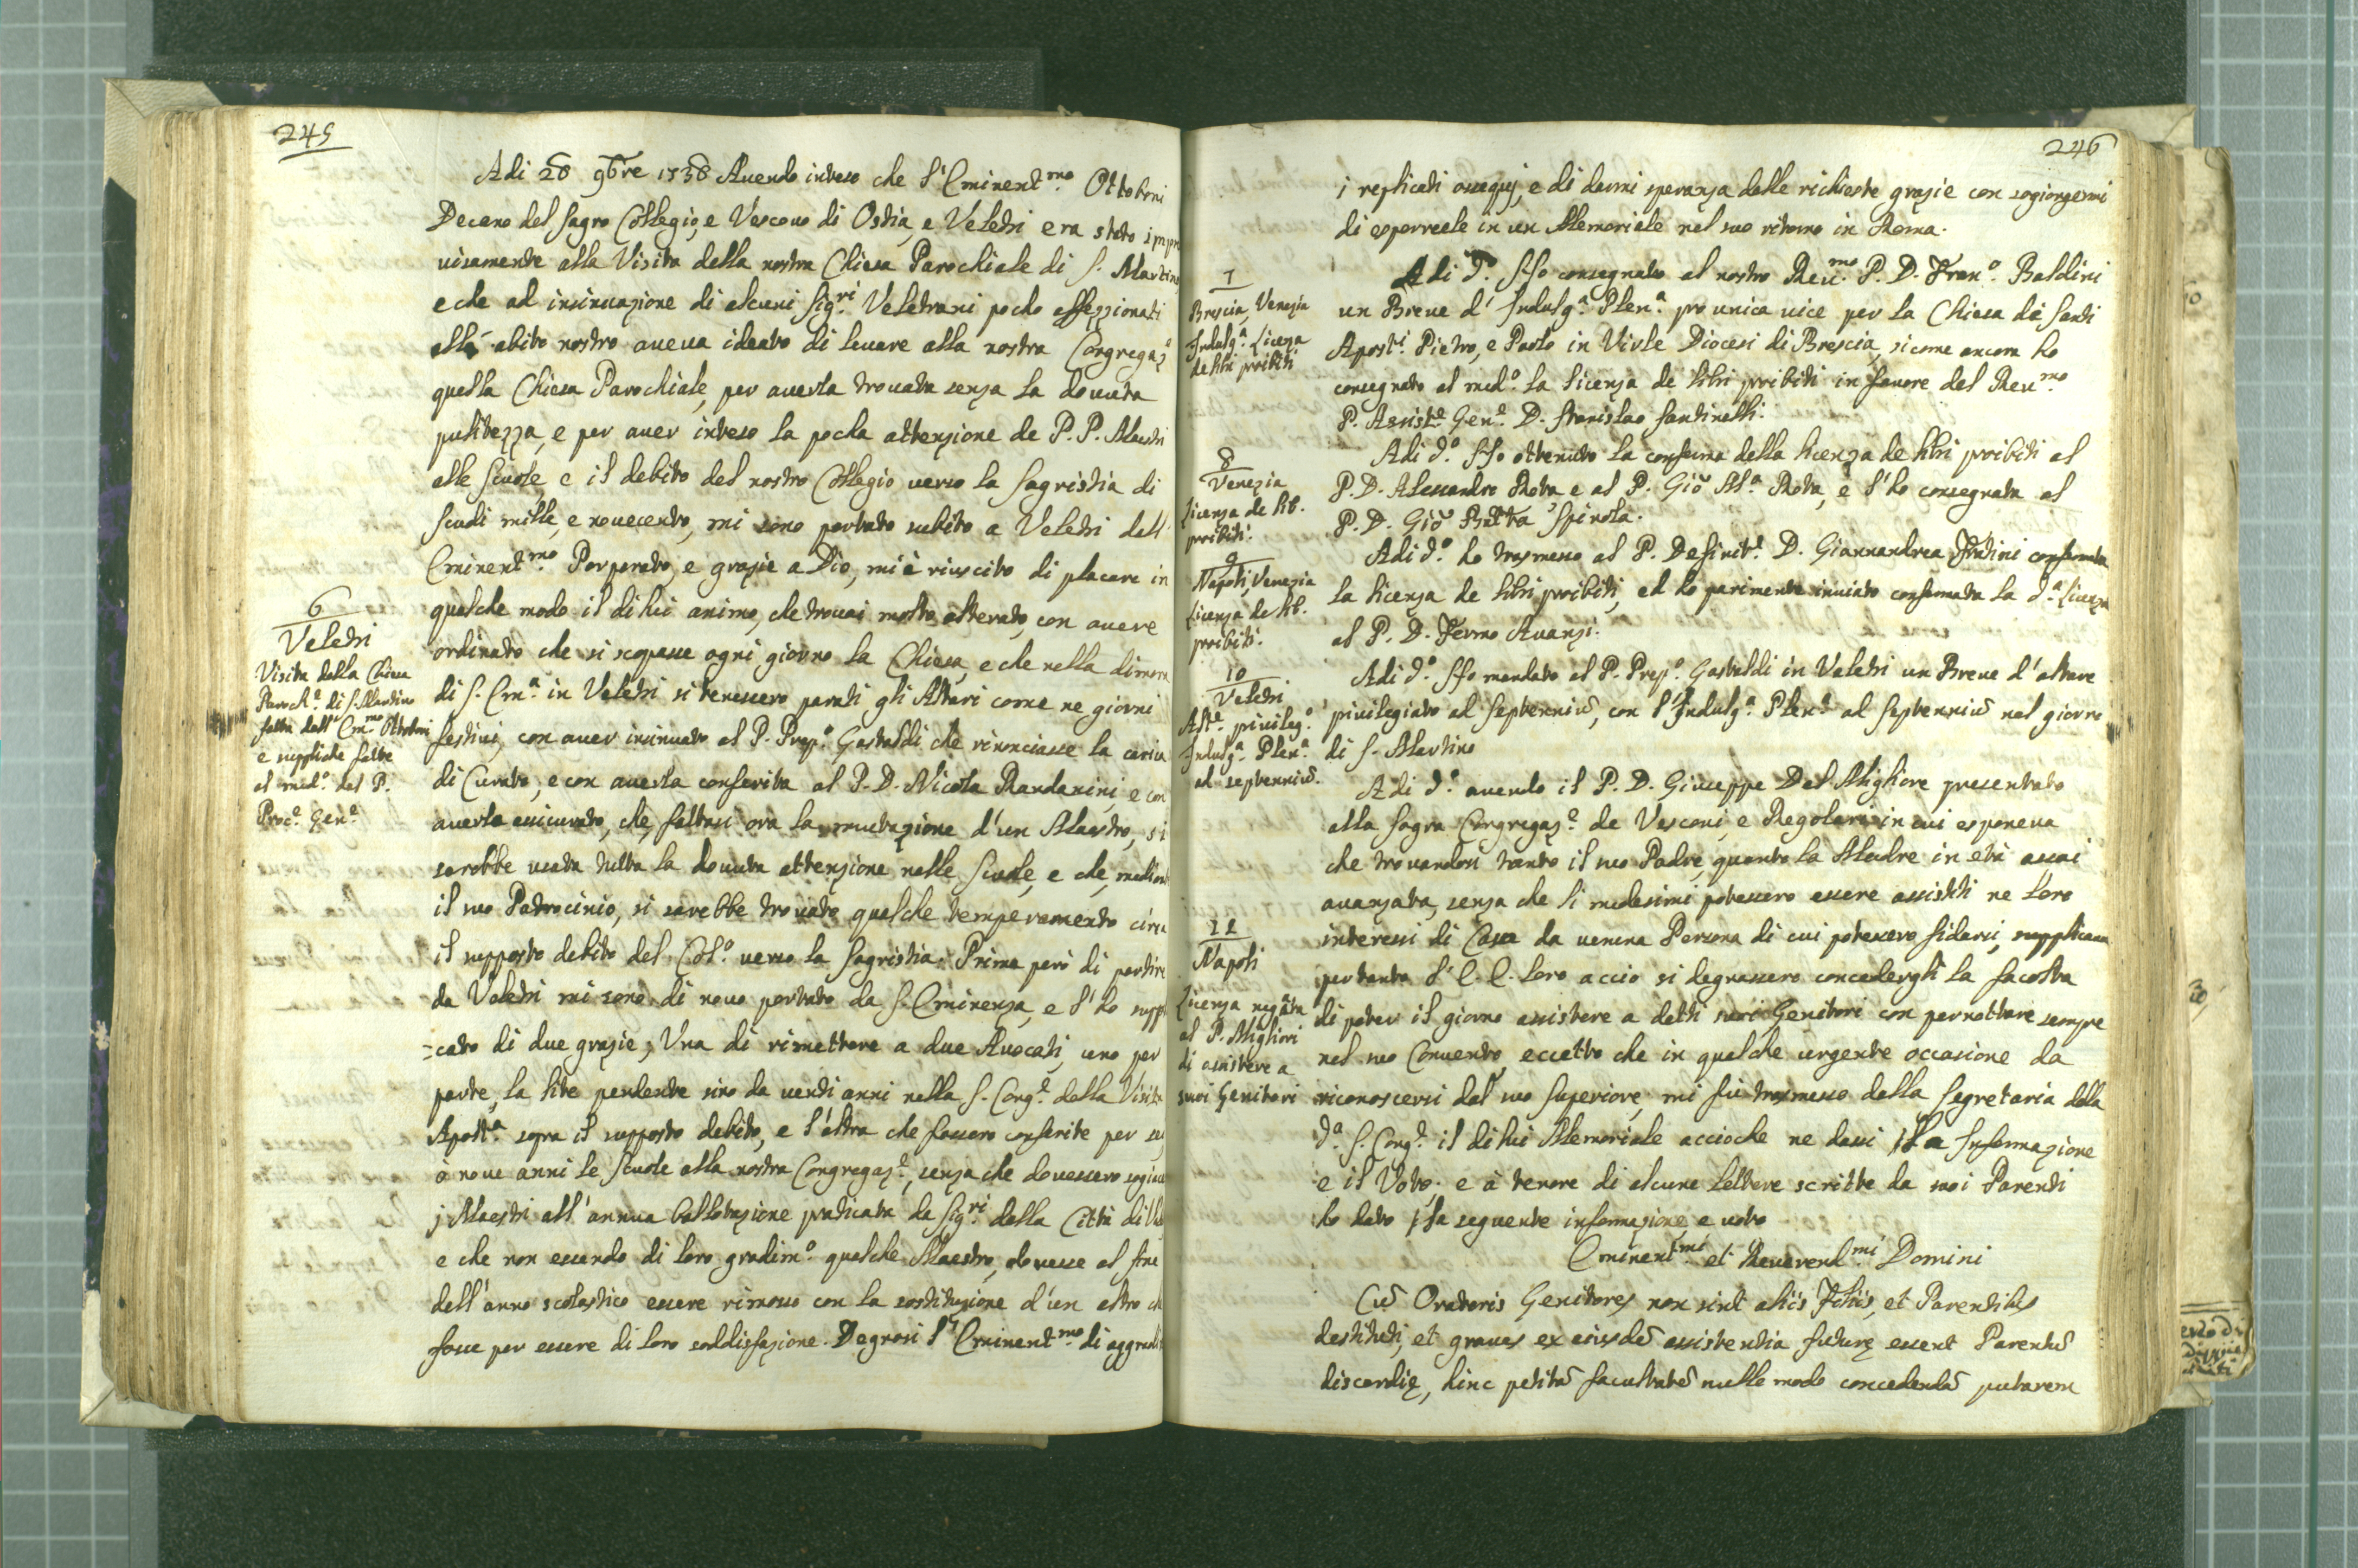 245
Adi 28 9bre 1738 Avendo inteso che l'Eminent.mo Ottoboni
Decano del sagro Collegio, e Vescouo di Ostia, e Veletri era stato impro
uisamente alla Visita della nostra Chiesa Parochiale di S. Martino
e che ad insinuazione di alcuni Sig.ri Veletrani poco affezzionati
all' abito nostro aueua ideato di leuare alla nostra Congregaz.e
quella Chiesa Parochiale, per auerla trouata senza la douuta
pulitezza, e per auer inteso la pocha attenzione de P.P. Maestri
alle Scuole, e il debito del nostro Collegio verso la sagristia di
scudi mille, e nouecento, mi sono portato subito a Veletri dall'
Eminent.mo Porporato, e grazie a Dio, mi è riuscito di placare in
qualche modo il di lui animo, che trouai molto alterato, con auere
ordinato che si scopasse ogni giorno la Chiesa, e che nella dimora
di S. Em.a in Veletri si tenessero parati gli Altari come ne giorni
festiui, con auer insinuato al P. Prep.o Gastaldi che rinonciasse la carica
di Curato, e con auerla conferita al P. D. Nicola Randanini, e con
auerlo assicurato, che, fattasi ora la mutazione d'un Maestro, si
sarebbe usata tutta la douuta attenzione nelle Scuole, e che, mediant
il suo Patrocinio, si sarebbe trouato qualche temperamento circa
il supposto debito del Col.o verso la sagristia. Prima però di partire
da Veletri mi sono di nouo portato da S. Eminenza, e l'ho suppli
=cato di due grazie; Una di rimettere a due Auocati, uno per
parte, la lite pendente sino da uenti anni nella S. Cong.e della Visita
Apost.a sopra il supposto debito, e l'altra che fossero conferite per sei
ò noue anni le Scuole alla nostra Congregaz.e, senza che douessero sogiac
j Maestri all'annua ballotazione praticata da Sig.ri della Città di Vel
e che non essendo di loro gradim.o qualche Maestro, douesse al fine
dell'anno scolastico essere rimosso con la sostituzione d'un altro ch
fosse per essere di loro soddisfazione. Degnosi l'Eminent.mo di aggradir
6
Veletri
Visita della Chiesa
Paroch.e di S. Martino
fatta dall' Em.mo Ottoboni
e suppliche fatte
al med.o dal P.
Proc.e Gen.e
246
j replicati ossequj, e di darmi speranza delle richieste grazie con sogiongermi
di esporrcele in un Memoriale nel suo ritorno in Roma.
7
Brescia, Venezia
Indulg.a Licenza
de libri proibiti
Adi d.o Ho consegnato al nostro Reu.mo P. D. Fran.o Baldini
un Breue d' Indulg.a Plen.a pro unica uice per la Chiesa de Santi
Apost.i Pietro, e Paolo in Virle Diocesi di Brescia, sicome ancora ho
consegnato al med.o la licenza de libri proibiti in fauore del Reu.mo
P. Assist.e Gen.e D. Stanislao Santinelli.
8
Venezia
Licenza de lib.
proibiti.
Adi d.o Ho ottenuto la conferma della licenza de libri proibiti al
P. D. Alessandro Rota e al P. Giō Al.a Rota, e l'ho consegnata al
P. D. Giō Batta Spinola.
9
Napoli, Venezia
Licenza de lib.
proibiti.
Adi d.o ho trasmesso al P. Definit.e D. Giannandrea confermata
la licenza de libri proibiti, ed ho parimente inuiato confermata la d.a Licenza
al P. D. Fermo Auanzi.
10
Veletri
Alt.e priuileg.o
Indulg.a Plen.a
ad septenniū.
Adi d.o Ho mandato al P. Prep.o Gastaldi in Veletri un Breue d'altare
priuilegiato ad septenniū, con l'Indulg.a Plen.a ad septenniū nel giorno
di S. Martino
11
Napoli
Licenza negata
al P. Migliori
di assistere a
suoi Genitori
Adi d.o auendo il P. D. Giuseppe Del Migliore presentato
alla Sagra Congregaz.e de Vescoui, e Regolari in cui esponeua
che trouandosi tanto il suo Padre, quanto la Madre in età assai
auanzata, senza che li medesimi potessero essere assistiti ne loro
interessi di Casa da ueruna Persona di cui potessero fidarsi, supplicaua
pertanto l' E. E. loro acciò si degnassero concedergli la facoltà
di poter il giorno assistere a detti suoi Genitori con pernottare sempre
nel suo Conuento, eccetto che in qualche urgente occasione da
riconoscersi dal suo Superiore, mi fù trasmesso dalla Segretaria della
d.a S. Cong.e il di lui Memoriale accioche ne dassi la Informazione
e il Voto; e à tenore di alcune lettere scritte da suoi Parenti
ho dato la seguente informazione, e uoto
Eminent.mi et Reuerend.mi Domini
Cū Oratoris Genitores non sint aliis Filiis, et Parentibus
destituti, et graues ex eiusdē assistentia futurę essent Parentū
discordię, hinc petitā facultatē nullo modo concedendā putarem